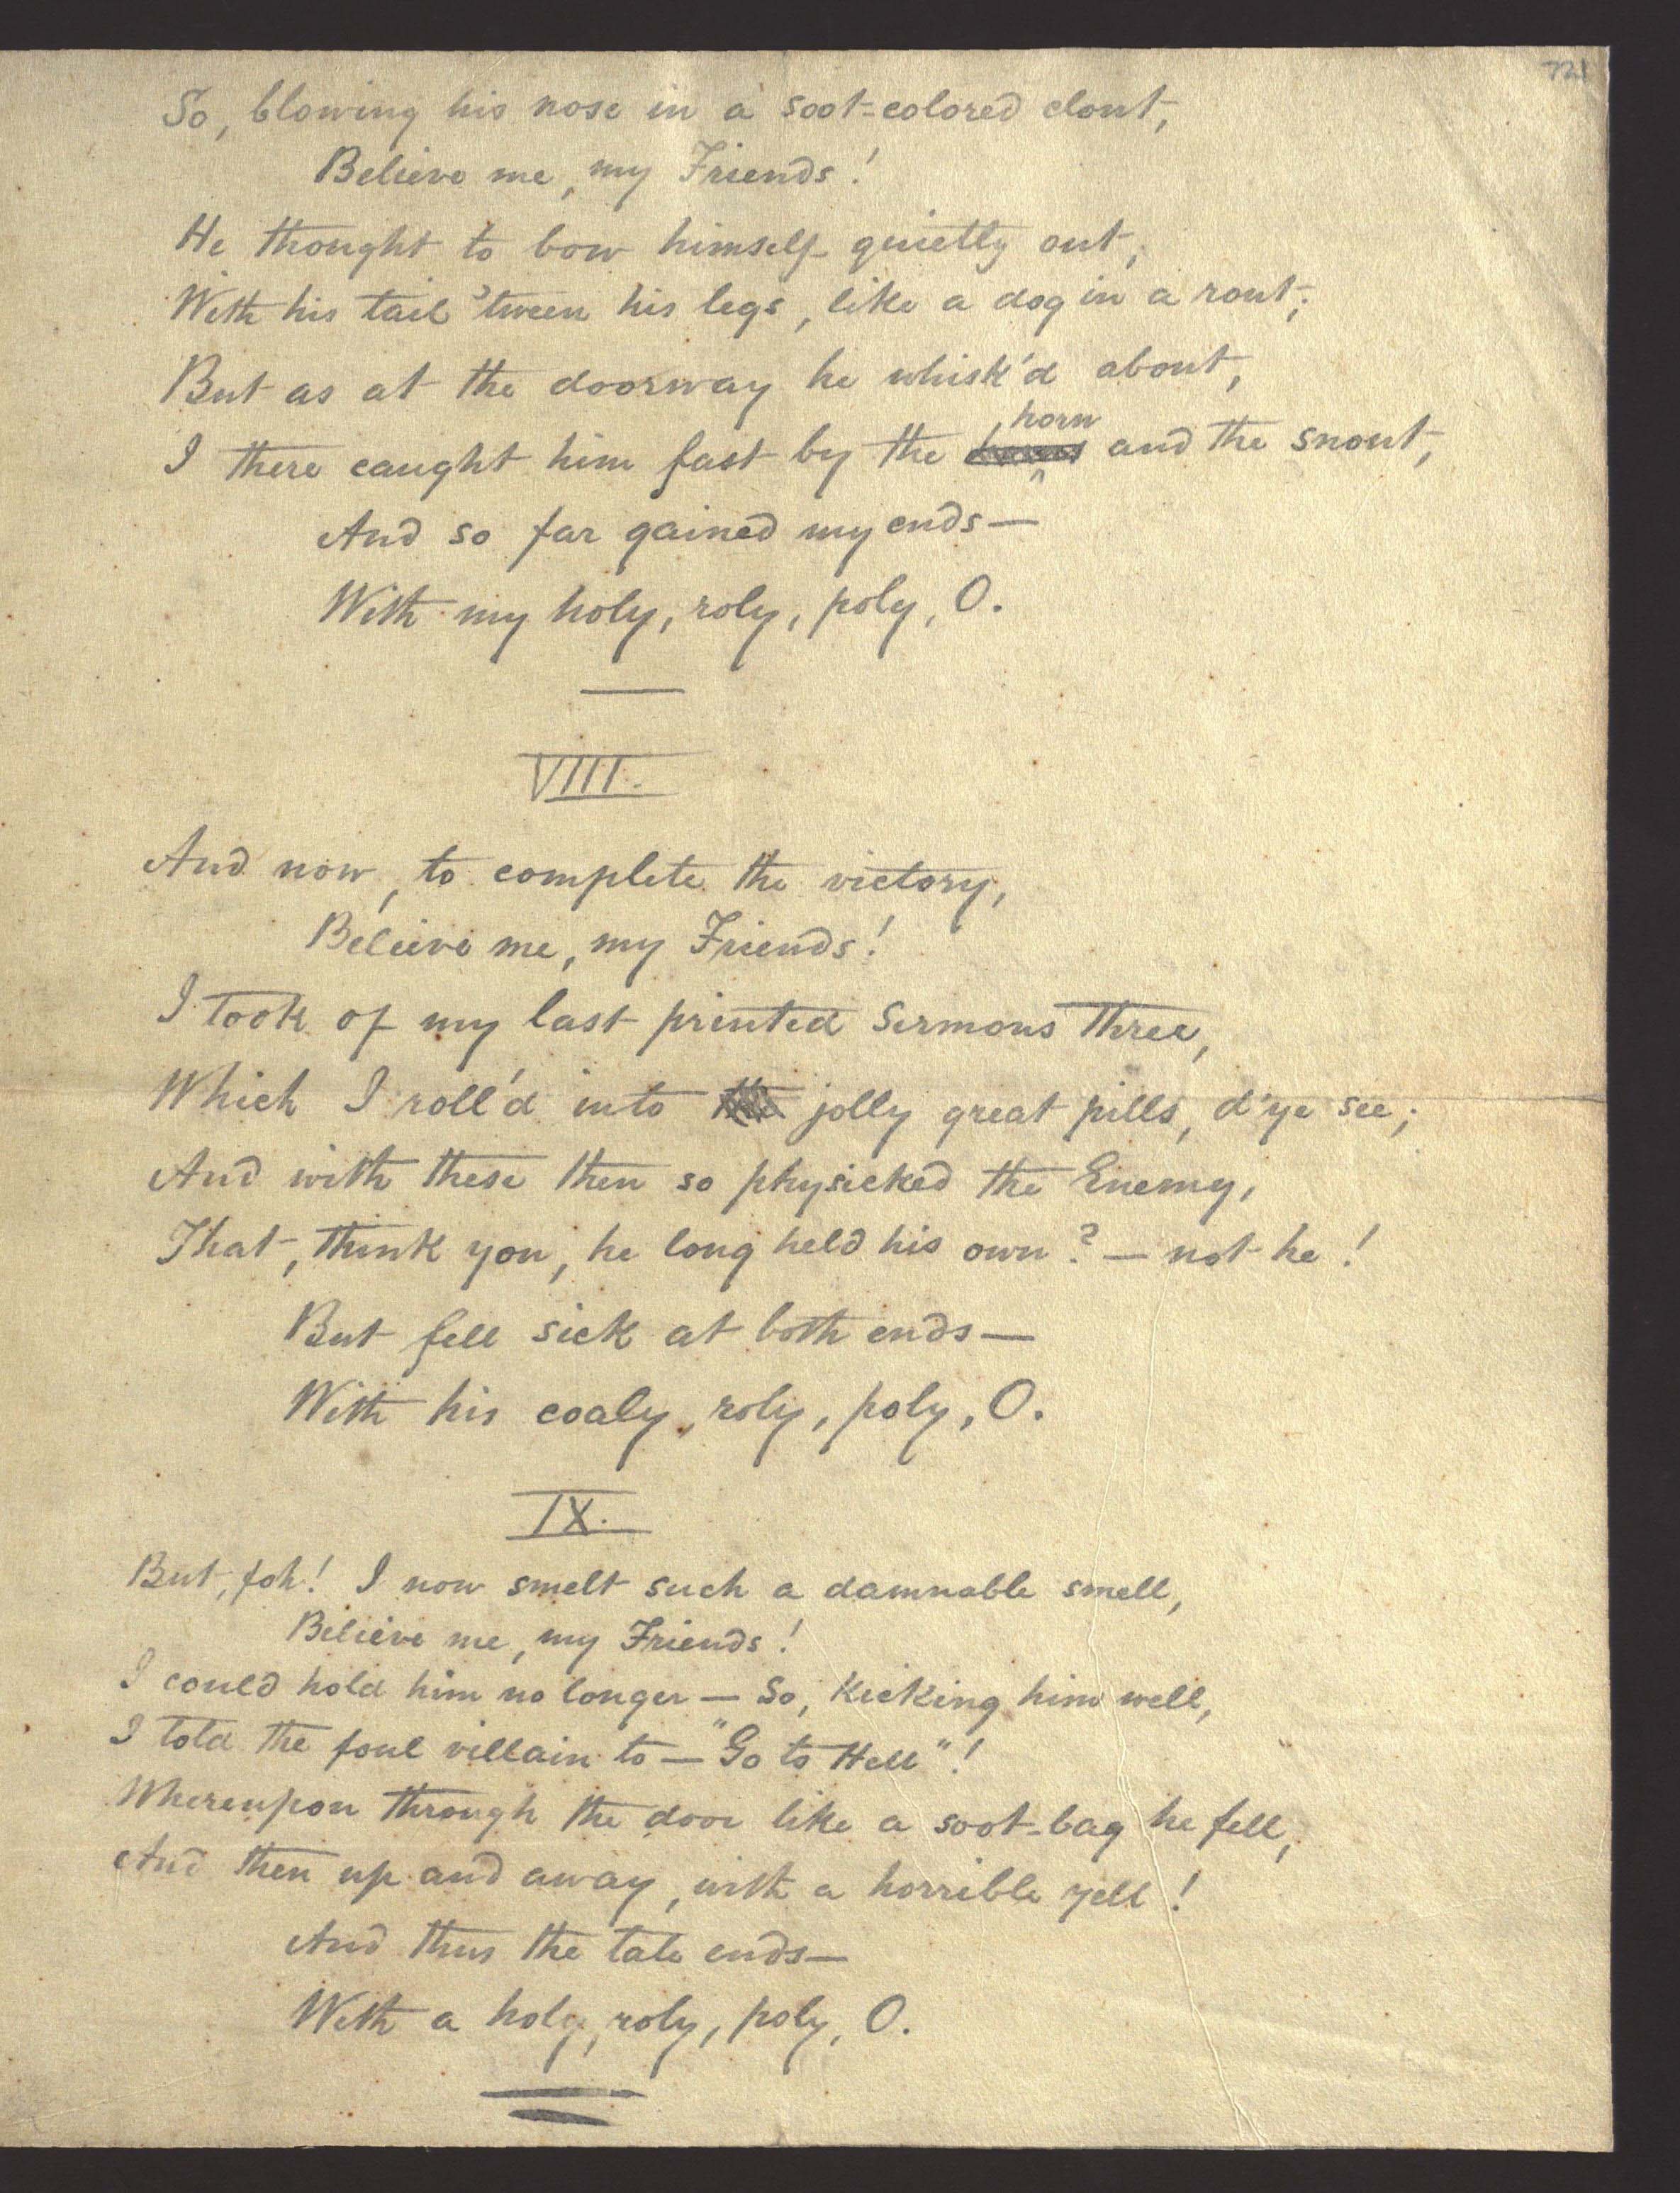 721
So, blowing his nose in a soot-colored clout,
Believe me, my Friends!
He thought to bow himself quietly out,
With his tail 'tween his legs, like a dog in a rout;
But as at the doorway he whisk'd about,
horn
I there caught him fast by the and the snout,
And so far gained my ends—
With my holy, roly, poly, O.
VIII.
And now, to complete the victory,
Believe me, my Friends!
I took of my last printed Sermons three,
Which I roll'd into jolly great pills, d'ye see;
And with these then so physicked the Enemy,
That, think you, he long held his own? — not he!
But fell sick at both ends—
With his coaly, roly, poly, O.
IX.
But, foh! I now smelt such a damnable smell,
Believe me, my Friends!
I could hold him no longer — So, kicking him well,
I told the foul villain to — "Go to Hell"!
Whereupon through the door like a soot-bag he fell,
And then up and away, with a horrible yell!
And thus the tale ends—
With a holy, roly, poly, O.